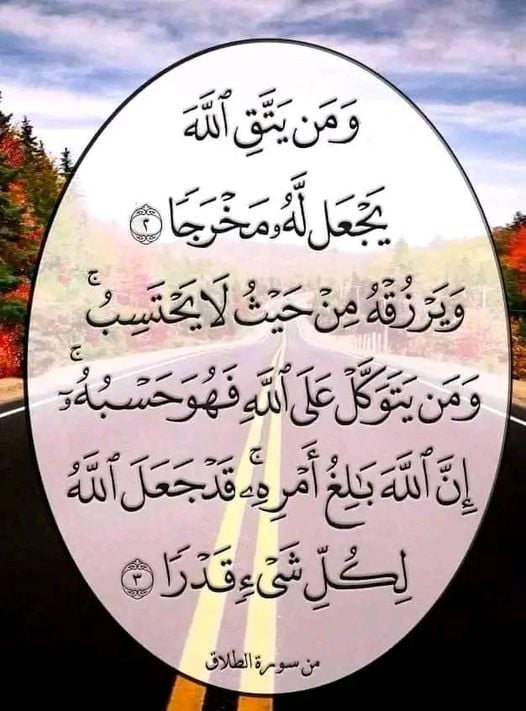 وَمَن يَتَّقِ ٱللَّهَ
يَجْعَل لَّهُۥ مَخْرَجًا ٢
وَيَرْزُقْهُ مِنْ حَيْثُ لَا يَحْتَسِبُ ۚ
وَمَن يَتَوَكَّلْ عَلَى ٱللَّهِ فَهُوَ حَسْبُهُۥٓ ۚ
إِنَّ ٱللَّهَ بَٰلِغُ أَمْرِهِۦ ۚ قَدْ جَعَلَ ٱللَّهُ
لِكُلِّ شَىْءٍ قَدْرًا ٣
من سورة الطلاق